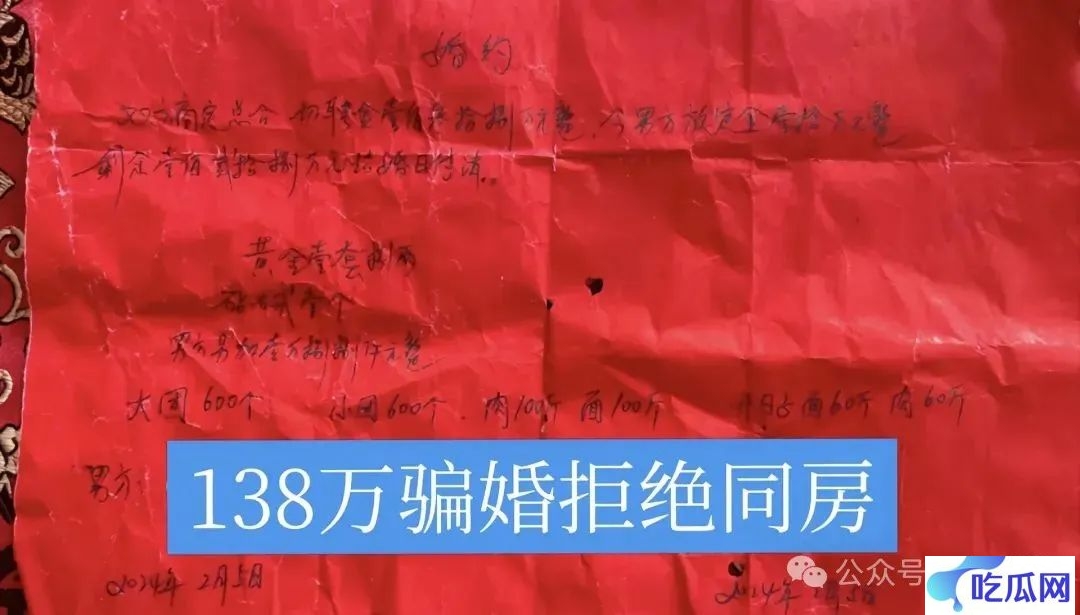 婚约
双方商定总合 切聘金壹佰叁拾捌万元整，今男方放定金壹拾万元整
剩余壹佰贰拾捌万元结婚日付清。
黄金壹套捌两
钻戒壹个
男方另加壹万捌捌仟元整
大团600个 小团600个．肉100斤 面100斤 面60斤 肉60斤
138万骗婚拒绝同房
男方：
2024年 2月5日
2024年 2月5日
公众号
吃瓜网